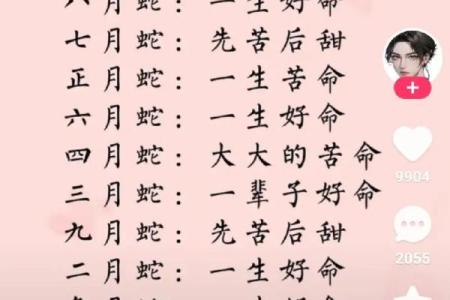 月蛇：一生好命
七月蛇：先苦后甜
正月蛇：一生苦命
六月蛇：一生好命
四月蛇：大大的苦命
三月蛇：一辈子好命
九月蛇：先苦后甜
二月蛇：一生好命
9904
2055